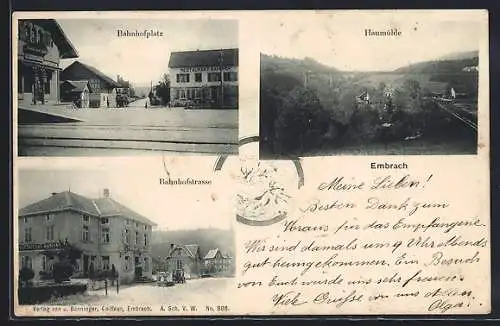 Bahnhofplatz
Haumühle
Embrach
Bahnhofstrasse
Meine Lieben!
Besten Dank zum
Voraus für das Empfangene.
Wir sind damals um 9 Uhr Abends
gut heimgekommen. Ein Besuch
von Euch würde uns sehr freuen.
Viele Grüsse von uns allen
Olga.
Verlag von J. Bänninger, Coiffeur, Embrach. A. Sch. V. W. No. 808.